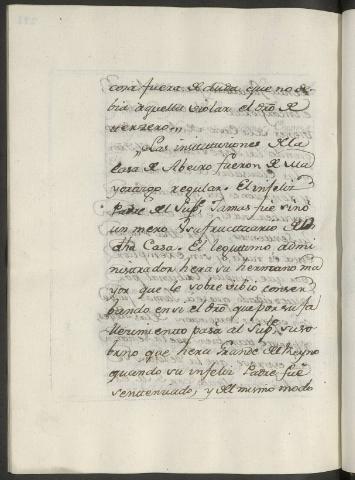 cosa fuera de duda que no de-
bia aquella violar el dro de
un terzero."
"Las instituciones de la
Casa de Abeiro fueron de Ma
yorazgo regular. El infeliz
Padre del Supte, Jamas fue sino
un mero Vsufructuario de
dha Casa. El legitimo admi
nistrador hera su hermano ma
yor que le sobre vibio conser
bando en si el dro que por su fa
llecimiento pasa al Supte, su so
brino que hera Grande del Reyno
quando su infeliz Padre fue
sentenciado, y del mismo modo